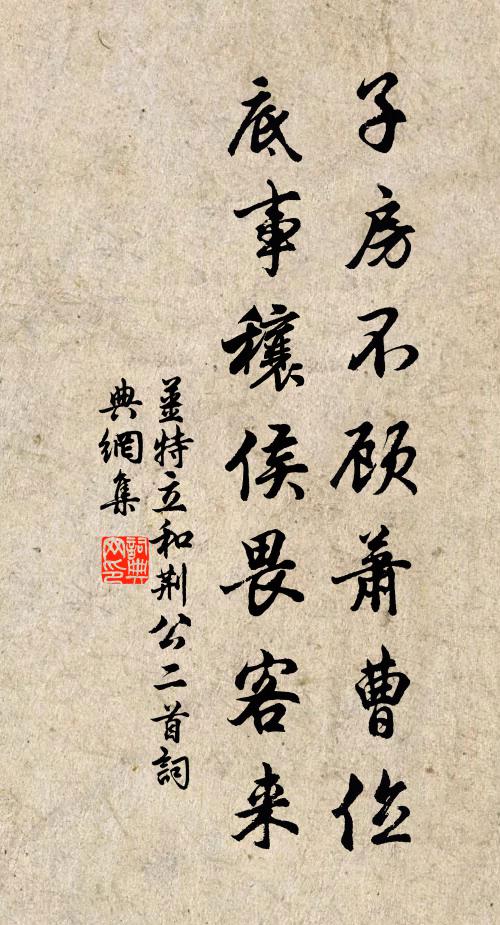 子房不顾蕭曹位
底事穰侯畏客来
薑特立和荆公二首詞
典網集
詞典
网印